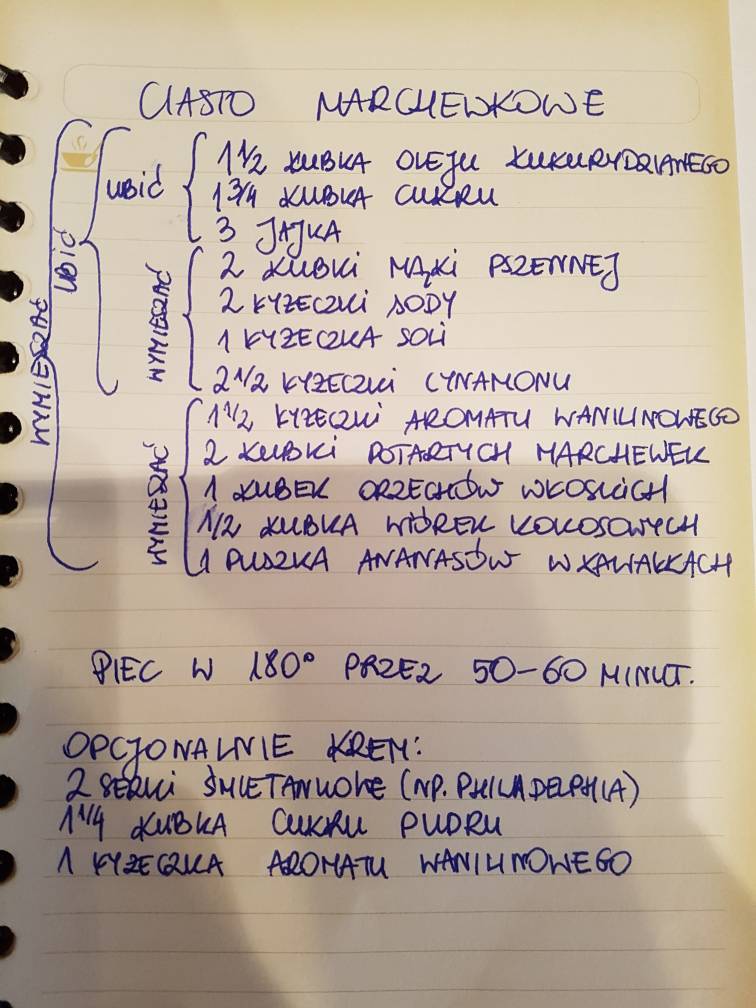 CIASTO MARCHEWKOWE
WYMIESZAĆ
UBIĆ
UBIĆ
1 1/2 KUBKA OLEJU KUKURYDZIANEGO
1 3/4 KUBKA CUKRU
3 JAJKA
WYMIESZAĆ
2 KUBKI MĄKI PSZENNEJ
2 ŁYŻECZKI SODY
1 ŁYŻECZKA SOLI
2 1/2 ŁYŻECZKI CYNAMONU
WYMIESZAĆ
1 1/2 ŁYŻECZKI AROMATU WANILINOWEGO
2 KUBKI POTARTYCH MARCHEWEK
1 KUBEK ORZECHÓW WŁOSKICH
1/2 KUBKA WIÓREK KOKOSOWYCH
1 PUSZKA ANANASÓW W KAWAŁKACH
PIEC W 180° PRZEZ 50-60 MINUT.
OPCJONALNIE KREM:
2 SERKI ŚMIETANKOWE (NP. PHILADELPHIA)
1 1/4 KUBKA CUKRU PUDRU
1 ŁYŻECZKA AROMATU WANILINOWEGO